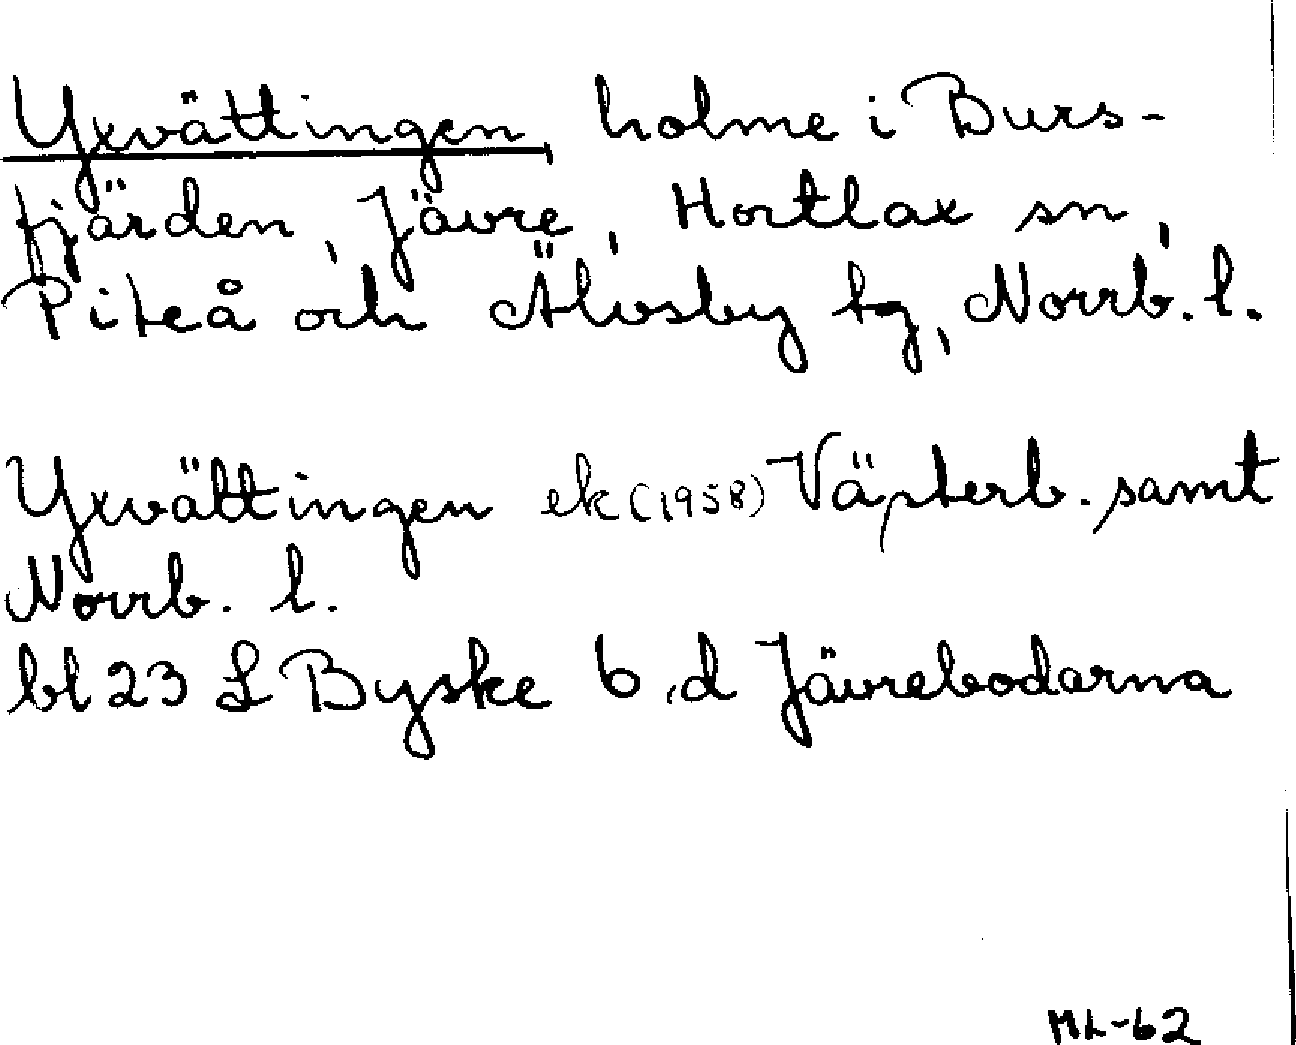 Yxvättingen holme i Burs-
fjärden, Jävre, Hortlax sn,
Piteå och Älvsby tg, Norrb. l.
Yxvättingen ek (1958) Västerb. samt
Norrb. l.
bl 23 L Byske 6 d Jävrebodarna
ML-62